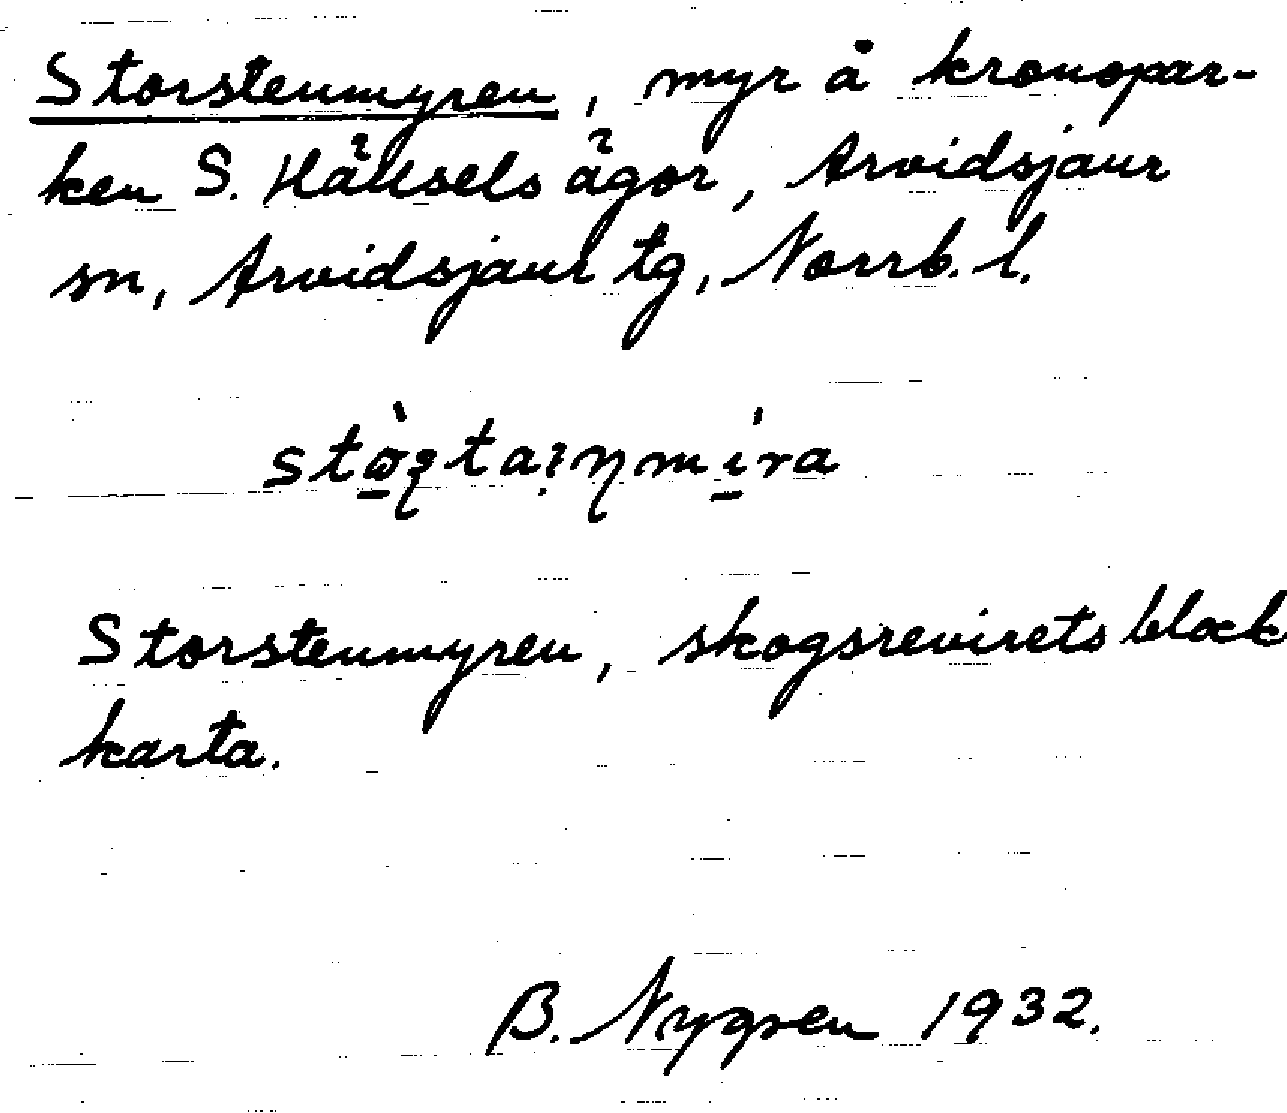 Storstenmyren, myr å kronopar-
ken S. Hällsels ägor, Arvidsjaur
sn, Arvidsjaur tg, Norrb. l.
Storstenmyren, skogsrevirets block
karta.
B. Nygren 1932.